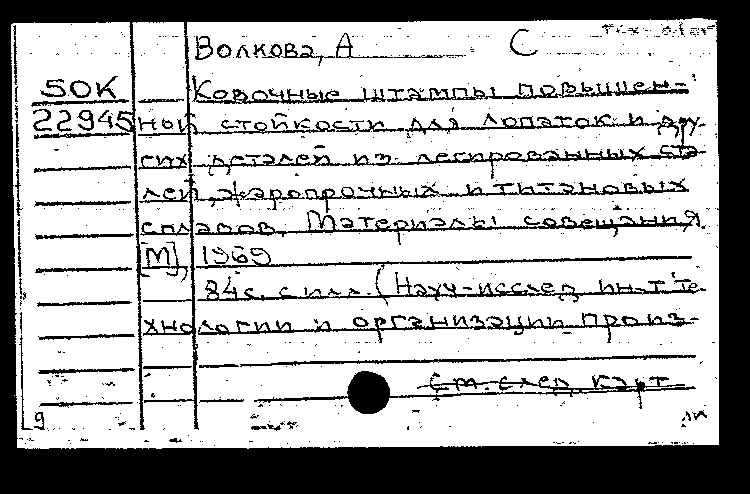 Волкова, А С
50К Ковочные штампы повышен-
22945 ной стойкости для лопаток и дру
гих деталей из легированных ста
лей, жаропрочных и титановых
сплавов. Материалы совещания.
[М], 1969
84с. с илл. (Науч-исслед ин-т "те
хнологии и организации произ-
См. след карт
9